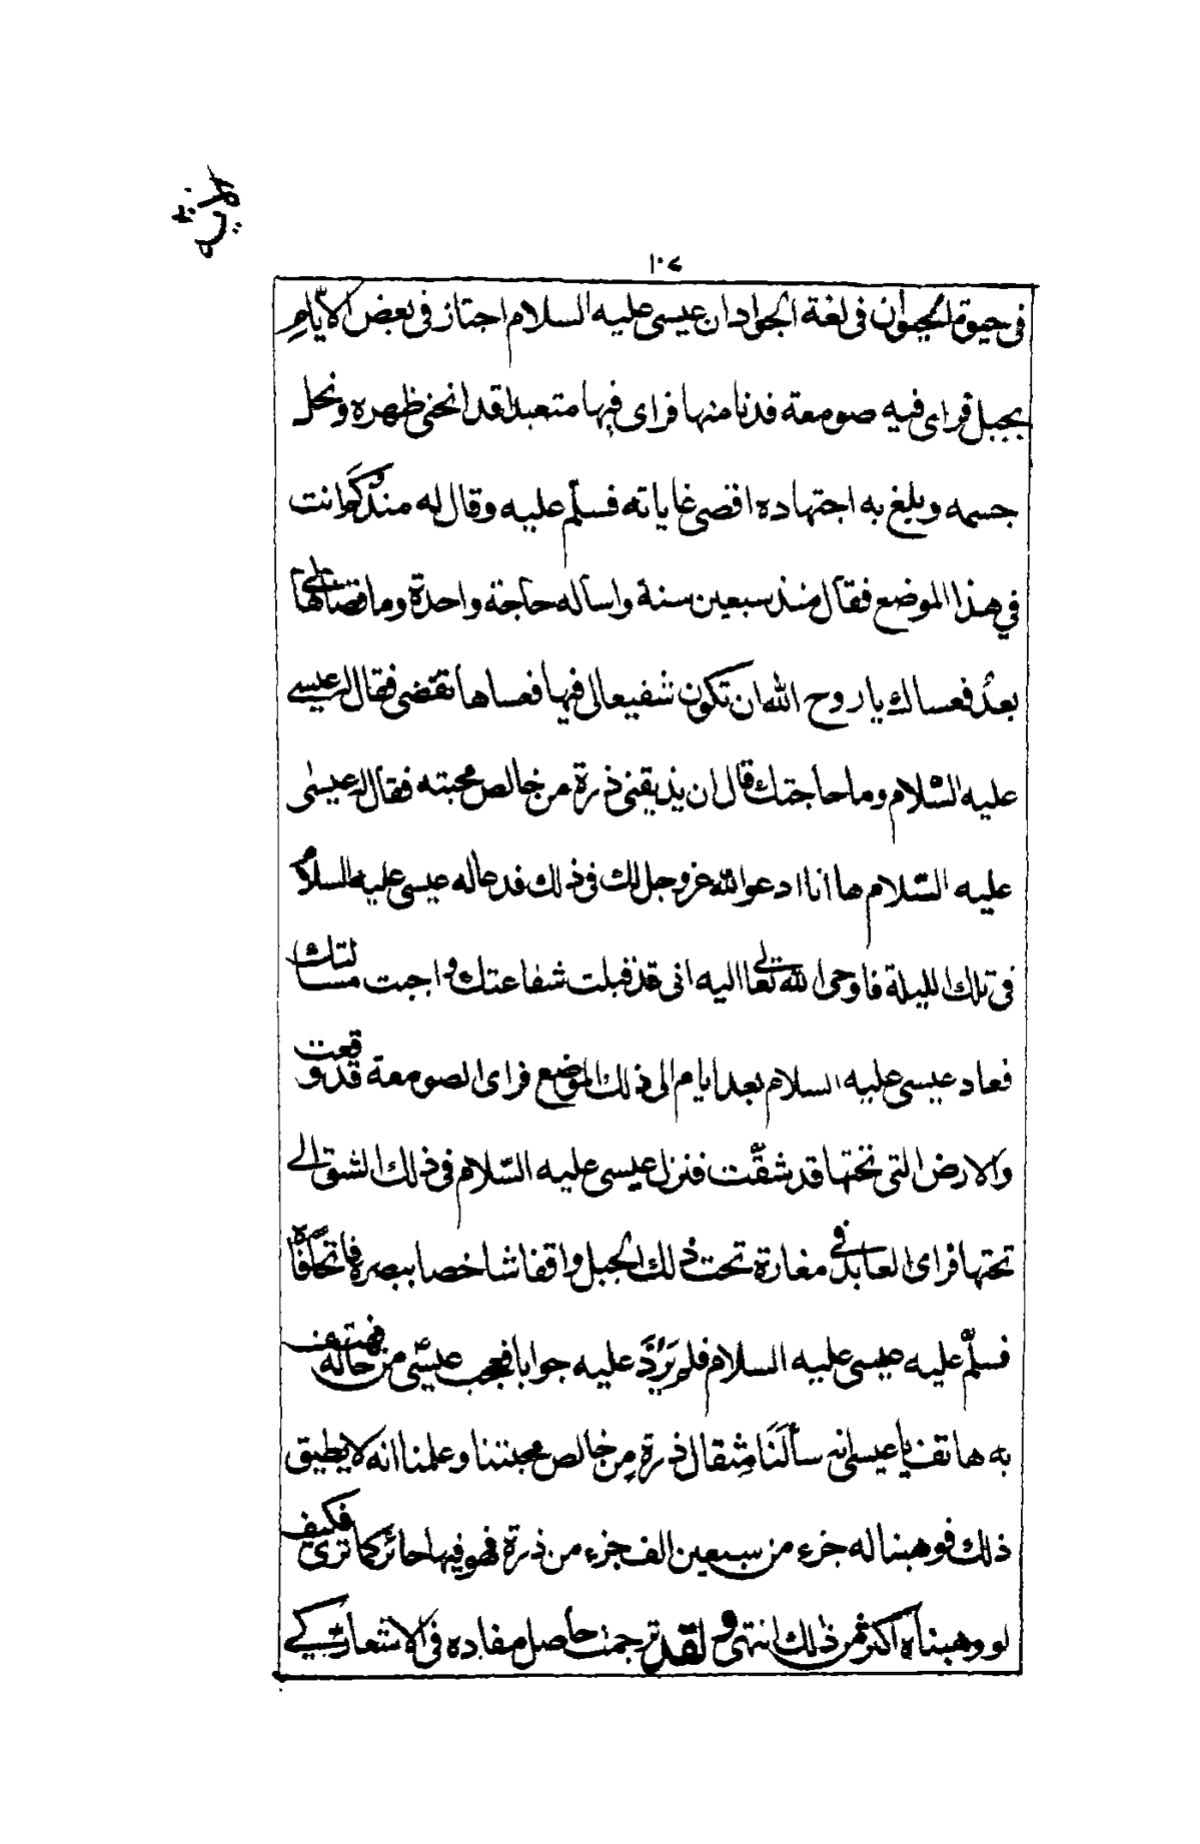 ١٠٧
فى حيوة الحيوان فى لغة الجواد ان عيسى عليه السلام اجتاز فى بعض الايّامِ
بجبل فراى فيه صومعة فدنا منها فراى فيها متعبدا قد انحنى ظهره ونحل
جسمه وبلغ به اجتهاده اقصى غاياته فسلّم عليه وقال له منذ كم انت
فى هذا الموضع فقال منذ سبعين سنة واساله حاجة واحدة وما قضاها لى
بعدُ فعساك يا روح الله ان تكون شفيعا لى فيها فعساها تقضى فقال له عيسى
عليه السّلام وما حاجتك قال ان يذيقنى ذرة من خالص محبته فقال له عيسى
عليه السّلام ها انا ادعو الله عز وجل لك فى ذلك فدعا له عيسى عليه السلام
فى تلك الليلة فاوحى الله تعالى اليه انى قد قبلت شفاعتك واجبت مسالتك
فعاد عيسى عليه السلام بعد ايام الى ذلك الموضع فراى الصومعة قد وقعت
والارض التى تحتها قد شقّت فنزل عيسى عليه السّلام فى ذلك الشق الى
تحتها فراى العابد فى مغارة تحت ذلك الجبل واقفا شاخصا ببصره فاتحا فاه
فسلّم عليه عيسى عليه السلام فلم يَرُدَّ عليه جوابا فعجب عيسى من حاله فهتف
به هاتف يا عيسى انه سألَنَا مِثقال ذرة مِن خالص محبتنا وعلمنا انه لا يطيق
ذلك فوهبنا له جزء من سبعين الف جزء من ذرة فهو فيها حائر كما ترى فكيف
لو وهبناه اكثر من ذلك انتهى و لقد ترجمت حاصل مفاده فى الاشعار